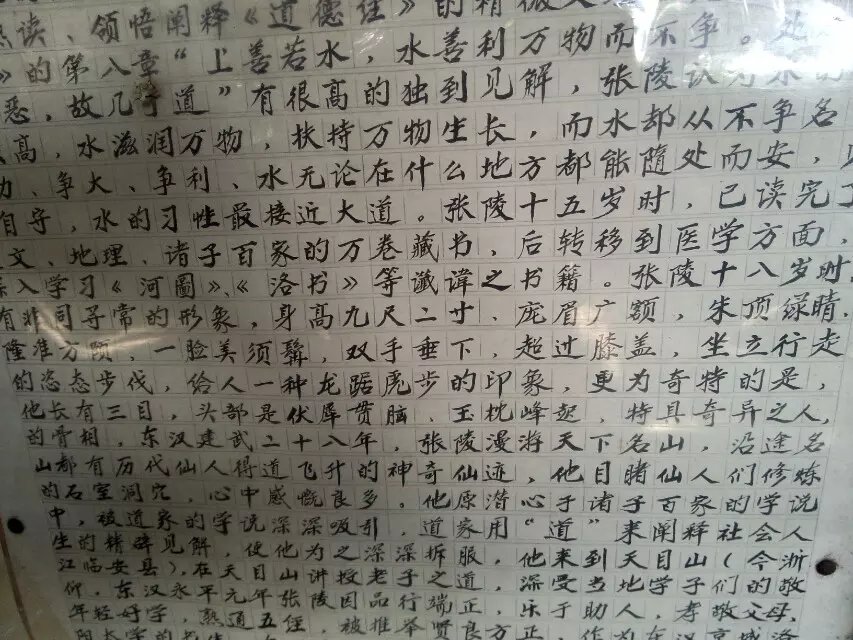 读、领悟阐释《道德经》的精微
》的第八章“上善若水，水善利万物而不争。处
恶，故几于道”有很高的独到见解，张陵认为水的
高，水滋润万物，扶持万物生长，而水却从不争名
、争大、争利、水无论在什么地方都能随处而安，
自守，水的习性最接近大道。张陵十五岁时，已读完了
文、地理、诸子百家的万卷藏书，后转移到医学方面，
入学习《河圖》、《洛书》等谶諱之书籍。张陵十八岁时
有非同寻常的形象，身高九尺二寸、庞眉广额，朱顶绿睛，
隆准方颐，一脸美须髯，双手垂下，超过膝盖，坐立行走
的姿态步伐，给人一种龙踞虎步的印象，更为奇特的是，
他长有三目，头部是伏犀贯脑、玉枕峰起，特具奇异之人，
的骨相，东汉建武二十八年，张陵漫游天下名山，沿途名
山都有历代仙人得道飞升的神奇仙迹，他目睹仙人们修炼
的石室洞穴，心中感慨良多。他原潜心于诸子百家的学说
中，被道家的学说深深吸引，道家用“道”来阐释社会人
生的精辟见解，使他为之深深拆服，他来到天目山（今浙
江临安县），在天目山讲授老子之道，深受当地学子们的敬
仰，东汉永平元年张陵因品行端正，乐于助人，孝敬父母，
年轻好学，熟通五经，被推举贤良方正，